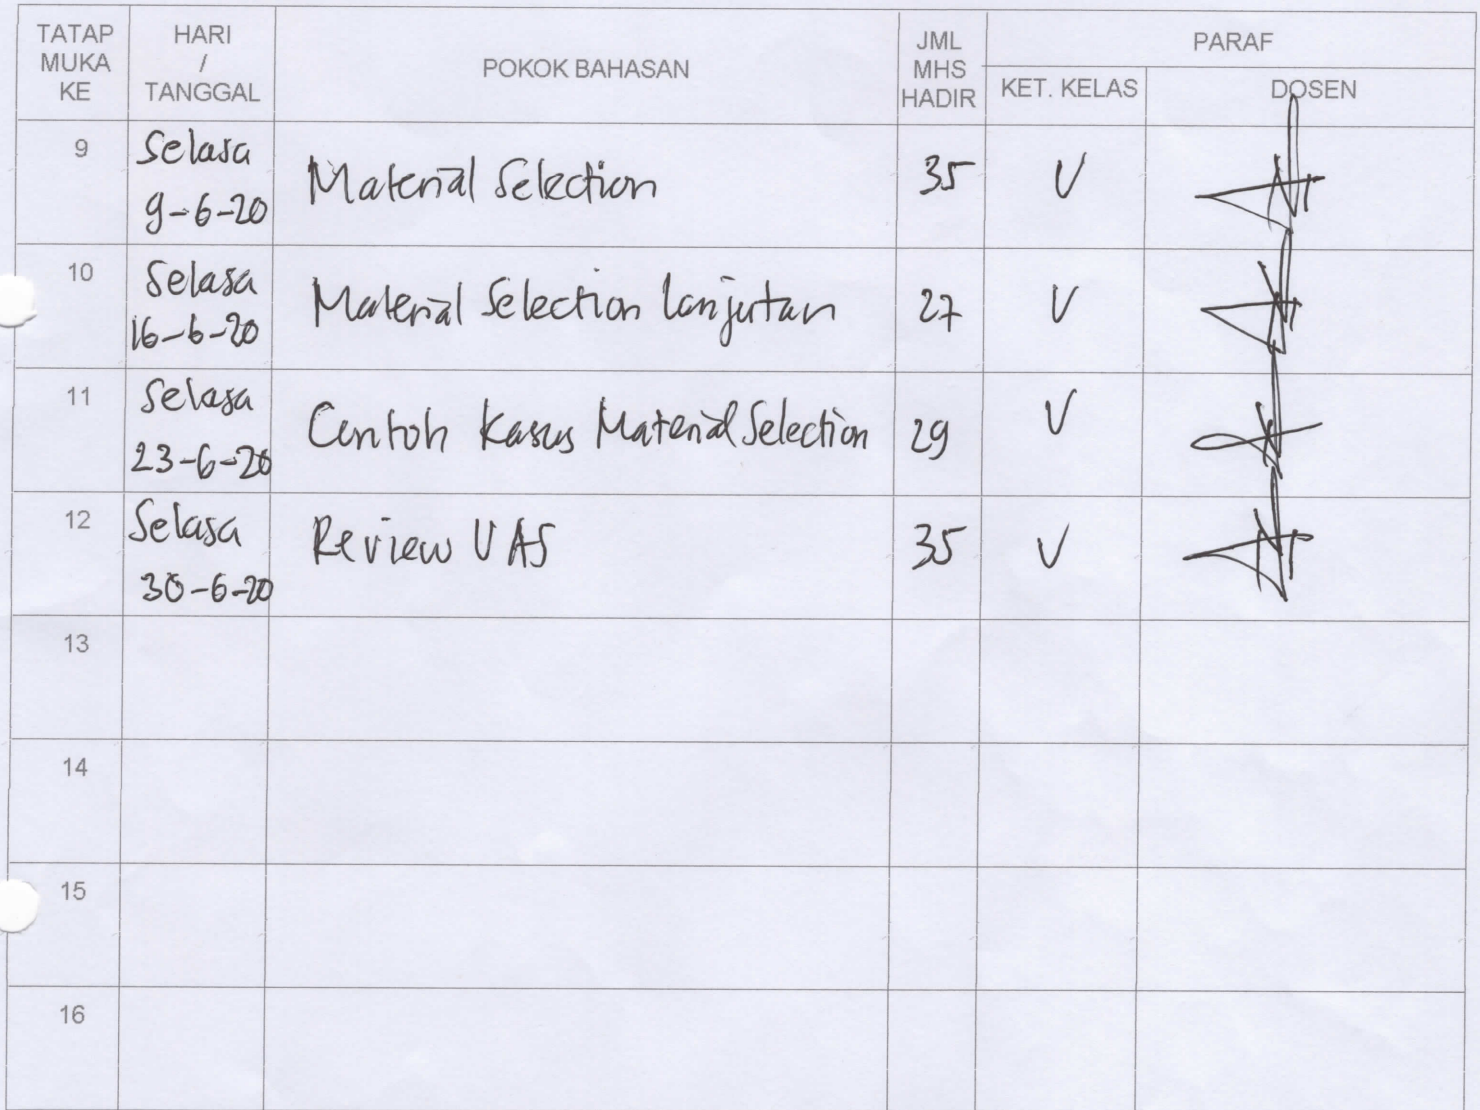 TATAP
MUKA
KE
HARI
/
TANGGAL
POKOK BAHASAN
JML
MHS
HADIR
PARAF
KET. KELAS
DOSEN
9
Selasa
9-6-20
Material Selection
35
V
10
Selasa
16-6-20
Material Selection Lanjutan
27
V
11
Selasa
23-6-20
Contoh Kasus Material Selection
29
V
12
Selasa
30-6-20
Review UAS
35
V
13
14
15
16